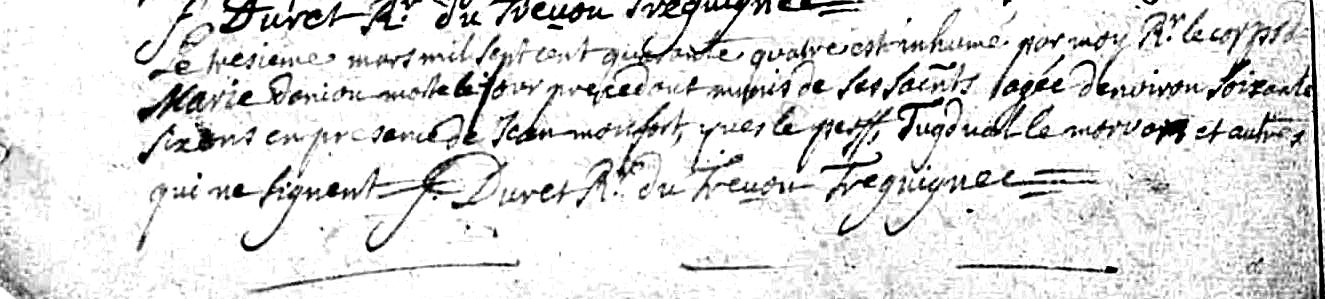 f. Duret Rr. du Trevou Treguignec
Le tresieme mars mil sept cent quarante quatre est inhumé par moy Rr. le corps de
Marie daniou morte le jour precedent munis de ses saints agée denviron soixante
six ans en presence de Jean monfort, yves le perff, Tugdual le morvan et autres
qui ne signent f. Duret Rr. du Trevou Treguignec